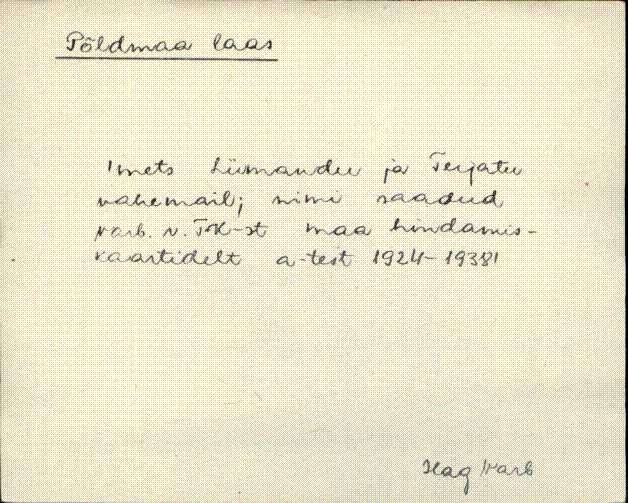 Põldmaa laas
'mets Liimandu ja Terjatu
vahemail; nimi saadud
varb. v. TK-st maa hindamis-
kaartidelt a-test 1924-1938'
Hag Varb